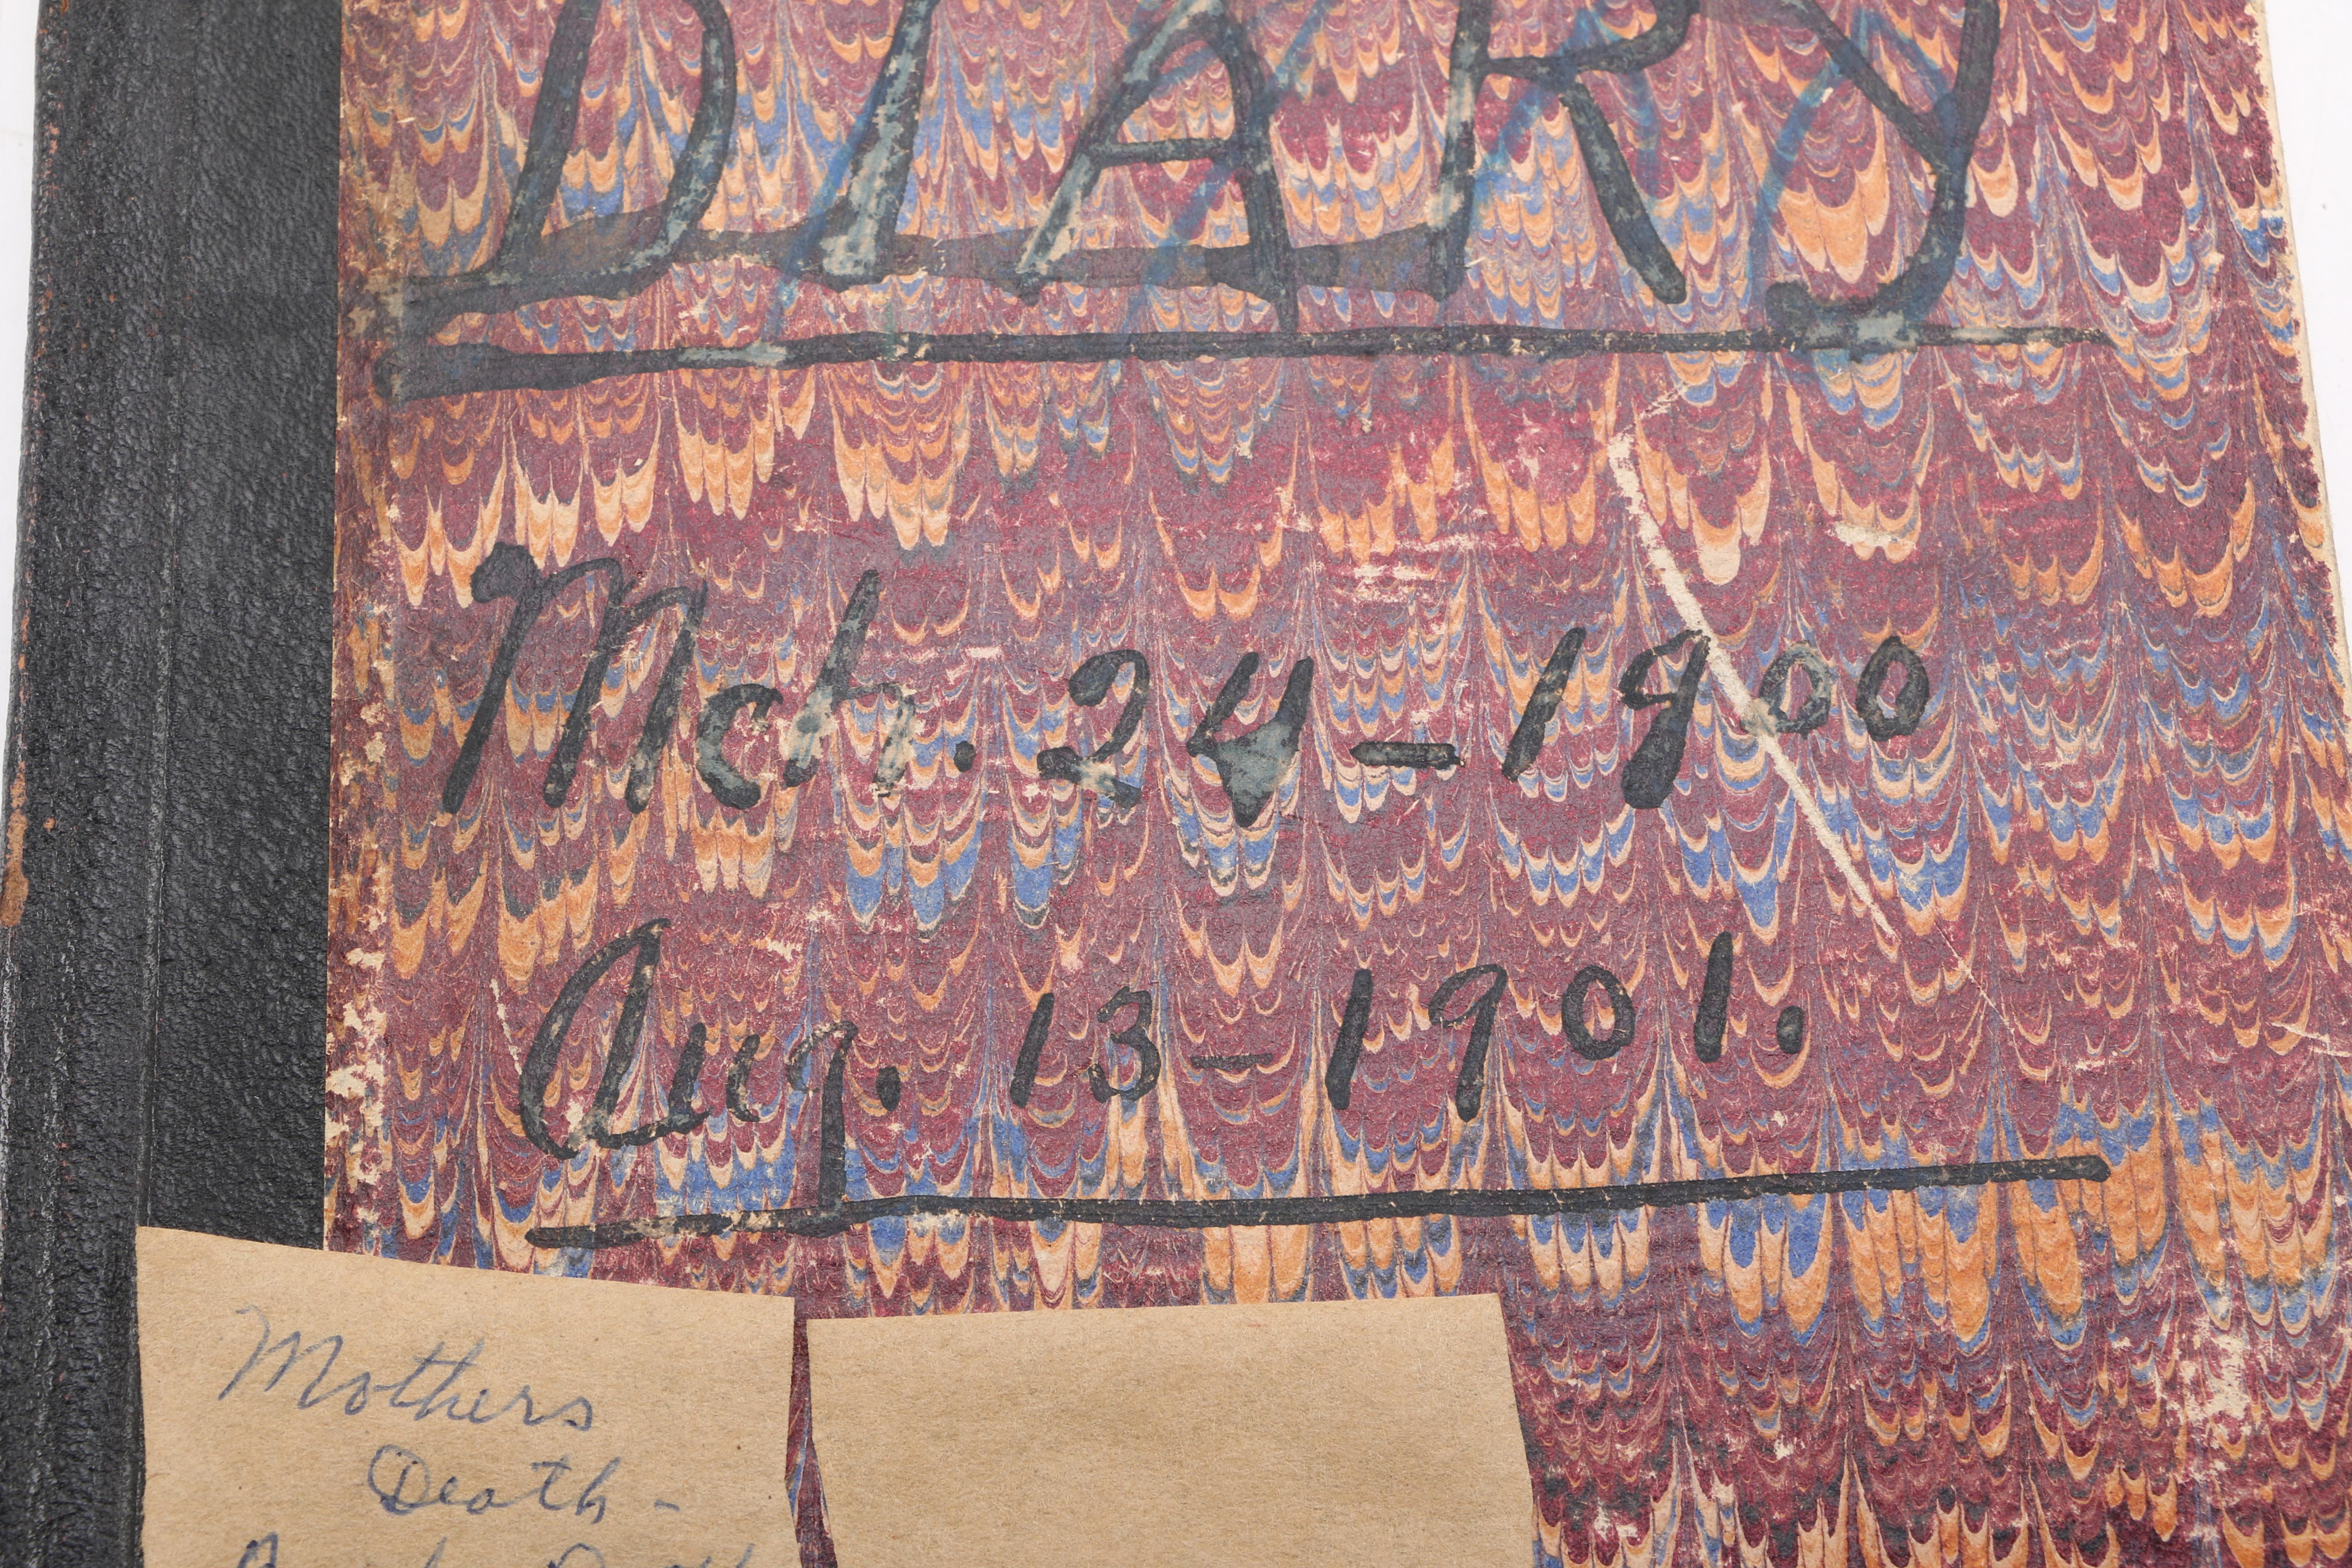 DIARY
Mch. 24 - 1900
Aug. 13 - 1901.
Mothers
Death -